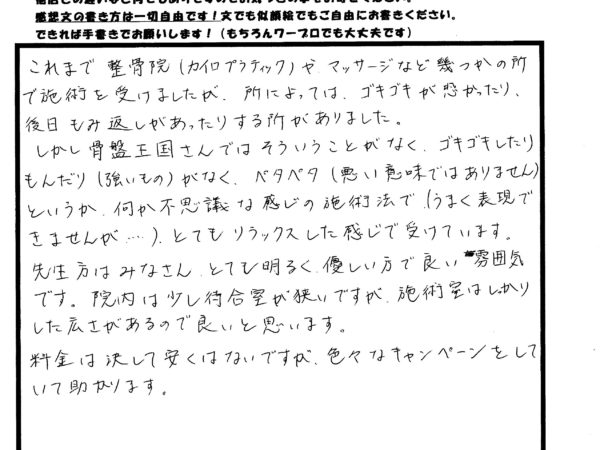 感想文の書き方は一切自由です！文でも似顔絵でもご自由にお書きください。
できれば手書きでお願いします！（もちろんワープロでも大丈夫です）
これまで整骨院（カイロプラティック）やマッサージなど幾つかの所
で施術を受けましたが、所によっては、ゴキゴキが恐かったり、
後日もみ返しがあったりする所がありました。
しかし骨盤王国さんではそういうことがなく、ゴキゴキしたり
もんだり（強いもの）がなく、ペタペタ（悪い意味ではありません）
というか、何か不思議な感じの施術法で、（うまく表現で
きませんが…）、とてもリラックスした感じで受けています。
先生方はみなさん、とても明るく、優しい方で良い雰囲気
です。院内は少し待合室が狭いですが、施術室はしっかり
した広さがあるので良いと思います。
料金は決して安くはないですが、色々なキャンペーンをして
いて助かります。